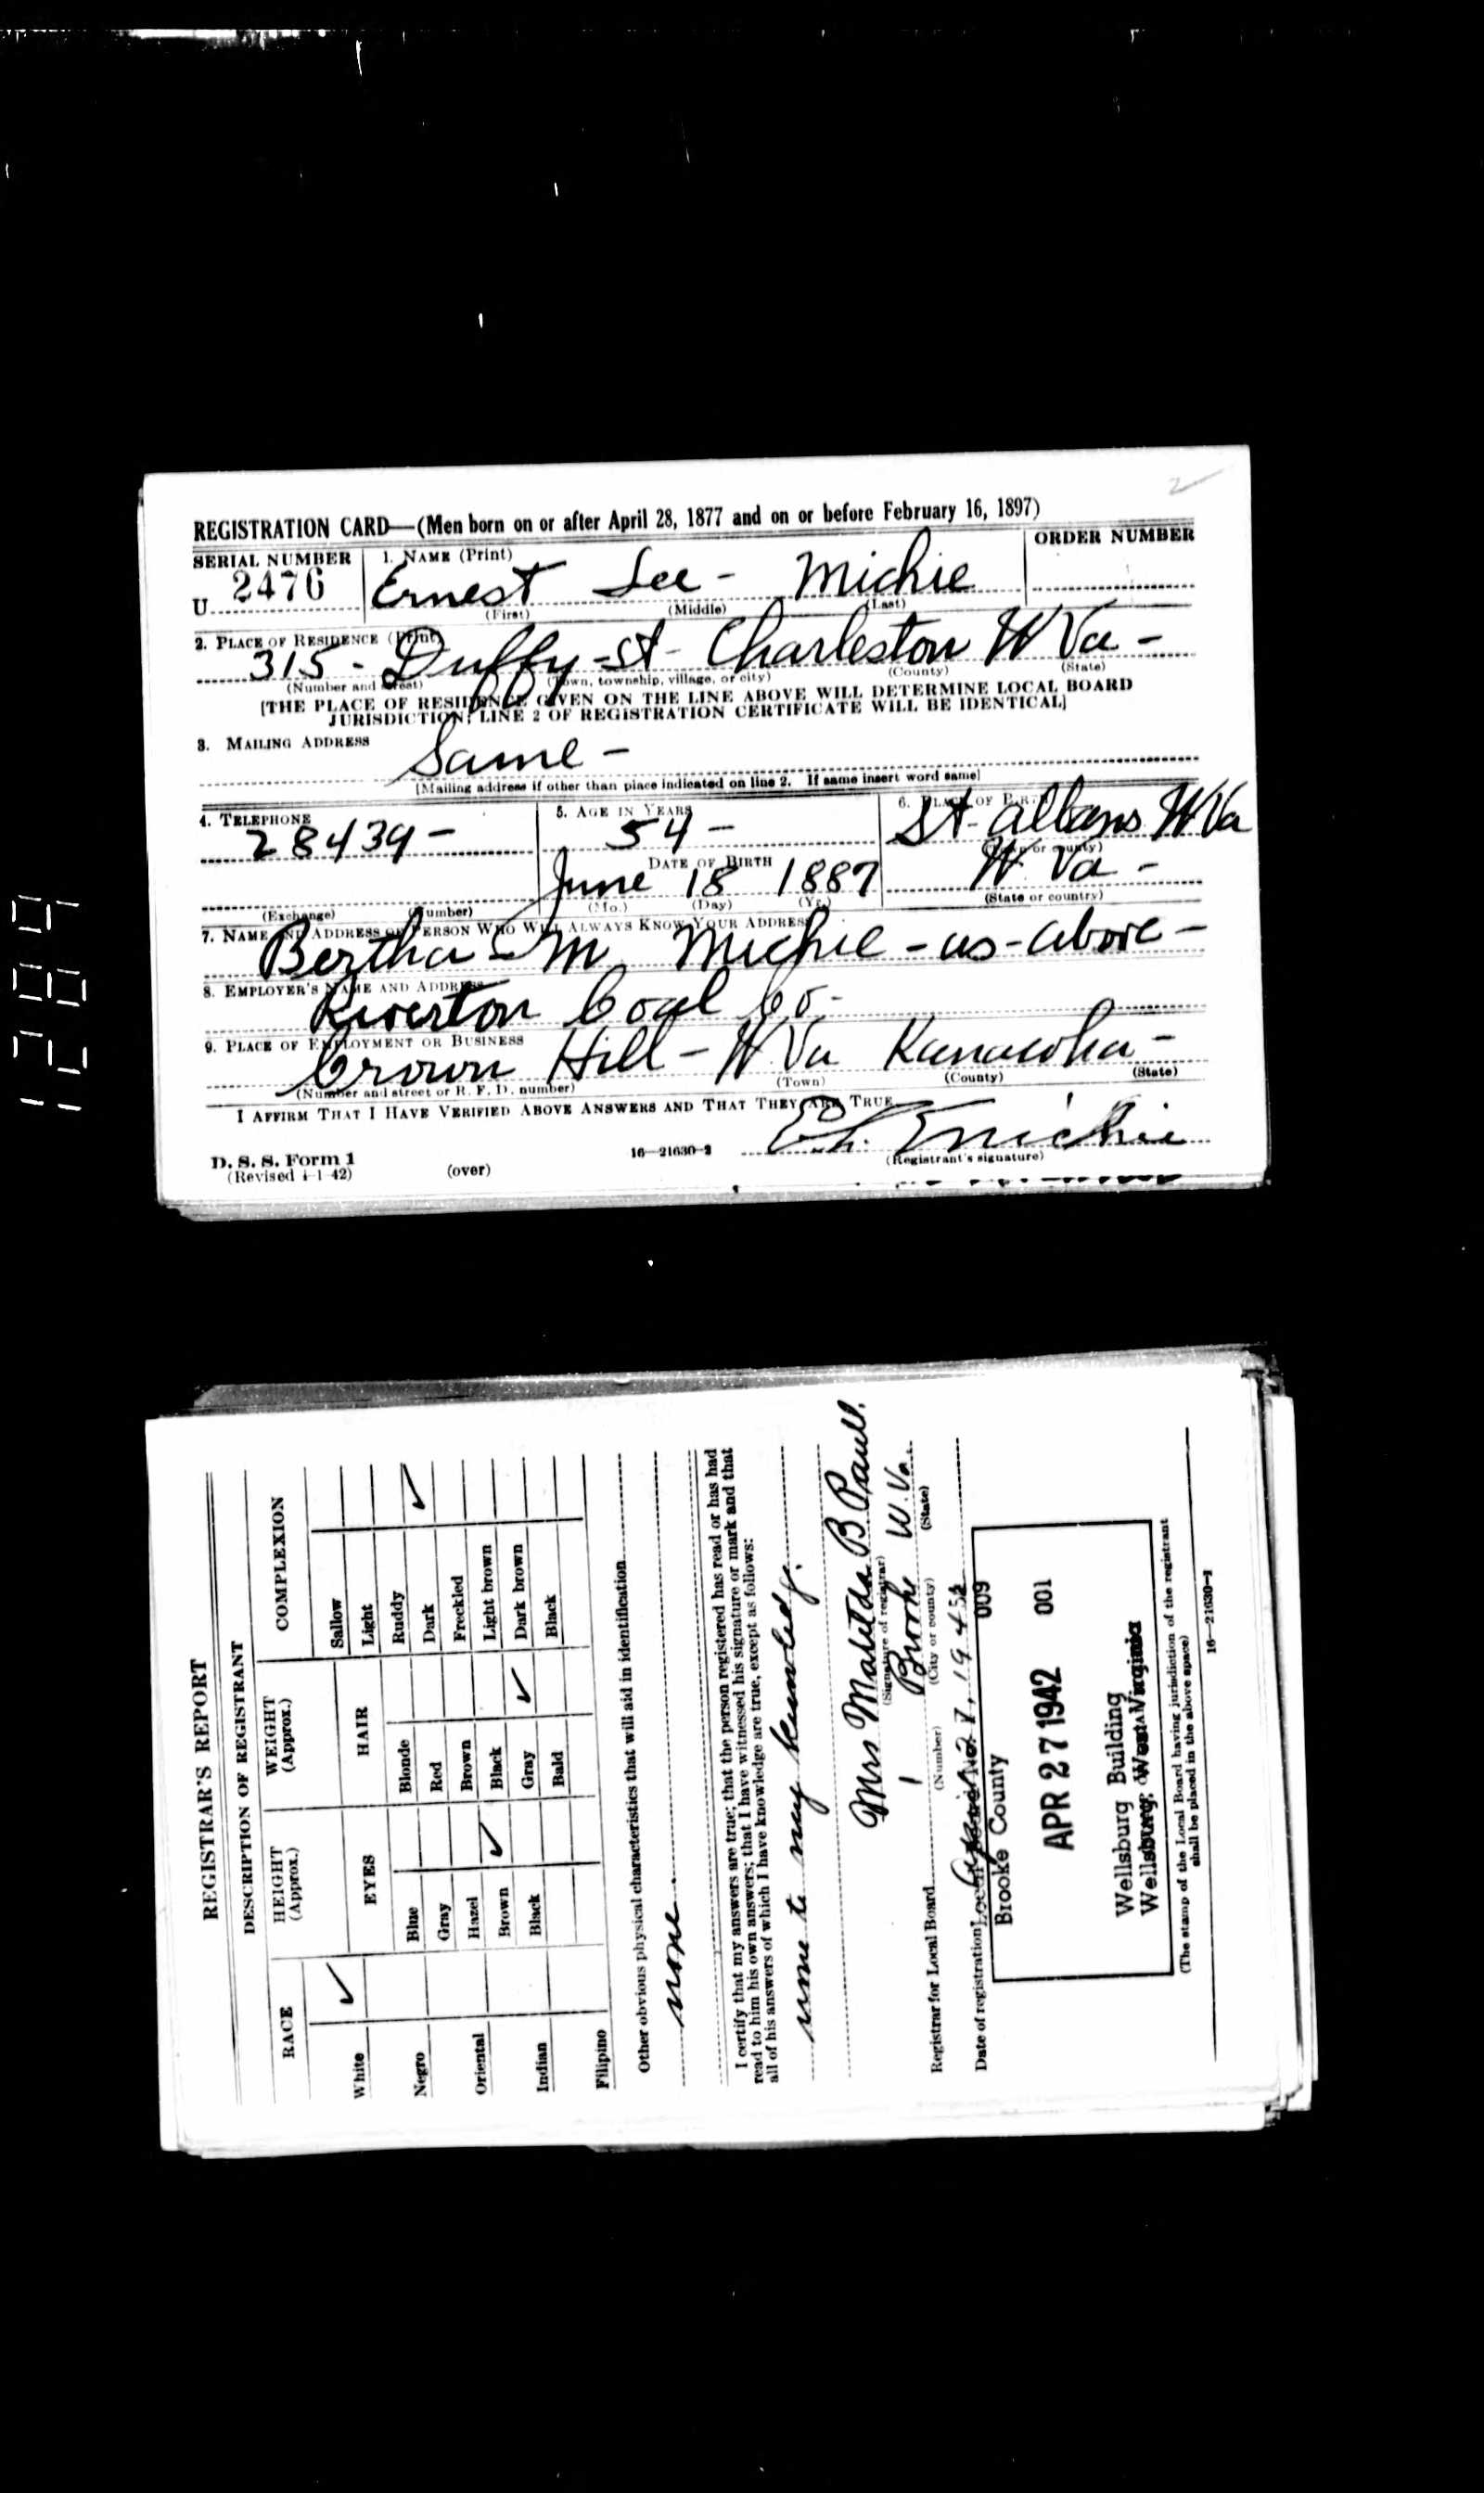 REGISTRATION CARD—(Men born on or after April 28, 1877 and on or before February 16, 1897)
SERIAL NUMBER 1. NAME (Print) ORDER NUMBER
U 2476 Ernest Lee - Michie
(First) (Middle) (Last)
2. PLACE OF RESIDENCE (Print)
315 - Duffy - St - Charleston W Va -
(Number and street) (Town, township, village, or city) (County) (State)
[THE PLACE OF RESIDENCE GIVEN ON THE LINE ABOVE WILL DETERMINE LOCAL BOARD
JURISDICTION; LINE 2 OF REGISTRATION CERTIFICATE WILL BE IDENTICAL]
3. MAILING ADDRESS
Same -
[Mailing address if other than place indicated on line 2. If same insert word same]
4. TELEPHONE 5. AGE IN YEARS 6. PLACE OF BIRTH
28439 - 54 - St. Albans W Va
DATE OF BIRTH (Town or county)
June 18 1887 W. Va -
(Exchange) (Number) (Mo.) (Day) (Yr.) (State or country)
7. NAME AND ADDRESS OF PERSON WHO WILL ALWAYS KNOW YOUR ADDRESS
Bertha - M Michie - as - above -
8. EMPLOYER'S NAME AND ADDRESS
Riverton Coal Co -
9. PLACE OF EMPLOYMENT OR BUSINESS
Crown Hill - W Va Kanawha -
(Number and street or R. F. D. number) (Town) (County) (State)
I AFFIRM THAT I HAVE VERIFIED ABOVE ANSWERS AND THAT THEY ARE TRUE.
E. L. Michie
D. S. S. Form 1 16—21630-2 (Registrant's signature)
(Revised 4-1-42) (over)
1289
REGISTRAR'S REPORT
DESCRIPTION OF REGISTRANT
RACE HEIGHT (Approx.) WEIGHT (Approx.) COMPLEXION
EYES HAIR
White ✓
Negro
Oriental
Indian
Filipino
Blue
Gray
Hazel
Brown ✓
Black
Blonde
Red
Brown
Black
Gray ✓
Bald
Sallow
Light
Ruddy
Dark ✓
Freckled
Light brown
Dark brown
Black
Other obvious physical characteristics that will aid in identification
none.
I certify that my answers are true; that the person registered has read or has had
read to him his own answers; that I have witnessed his signature or mark and that
all of his answers of which I have knowledge are true, except as follows:
none to my knowledg.
Mrs Matilda B Paull.
(Signature of registrar)
Registrar for Local Board 1 Brooke W. Va.
(Number) (City or county) (State)
Date of registration April 27, 1942
009
Brooke County
APR 27 1942 001
Wellsburg Building
Wellsburg, West Virginia
(The stamp of the Local Board having jurisdiction of the registrant
shall be placed in the above space)
16—21630-2